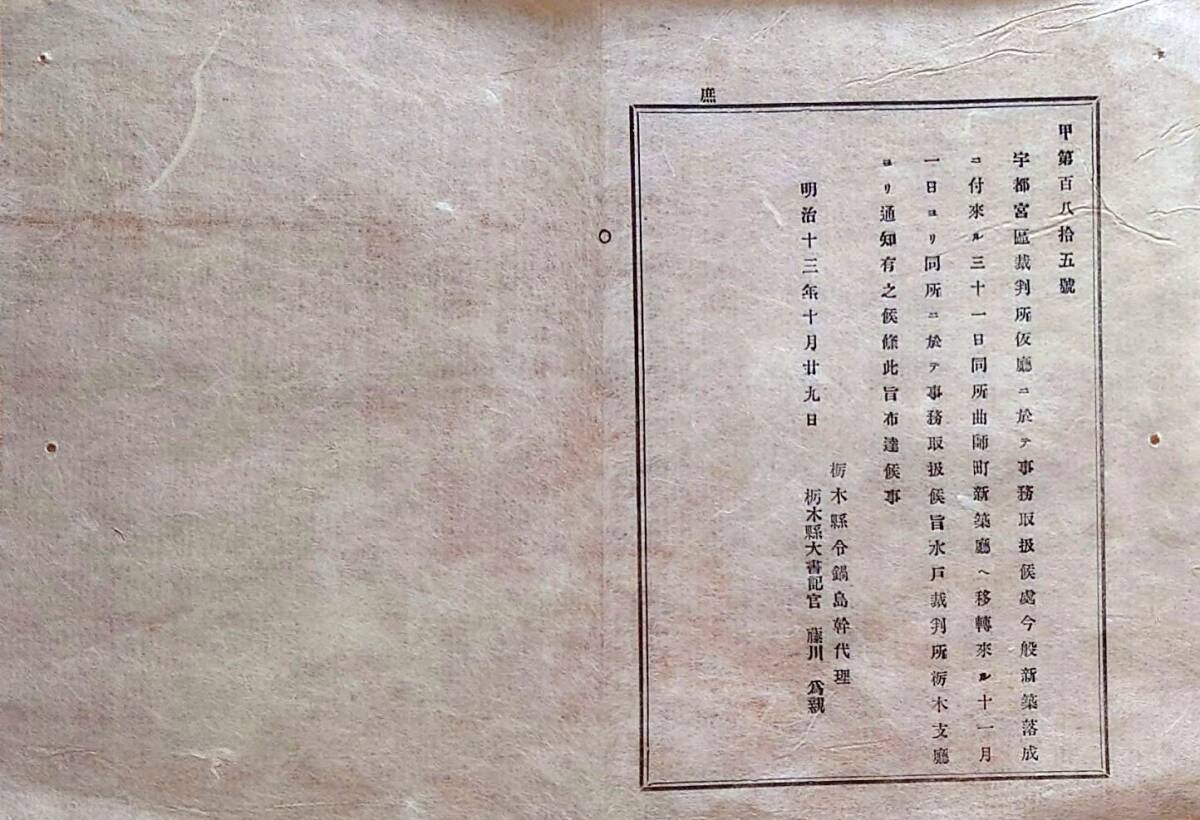 甲第百八拾五號
宇都宮區裁判所仮廳ニ於テ事務取扱候處今般新築落成
ニ付來ル三十一日同所曲師町新築廳ヘ移轉來ル十一月
一日ヨリ同所ニ於テ事務取扱候旨水戸裁判所栃木支廳
ヨリ通知有之候條此旨布達候事
明治十三年十月廿九日
栃木縣令鍋島幹代理
栃木縣大書記官 藤川爲親
庶